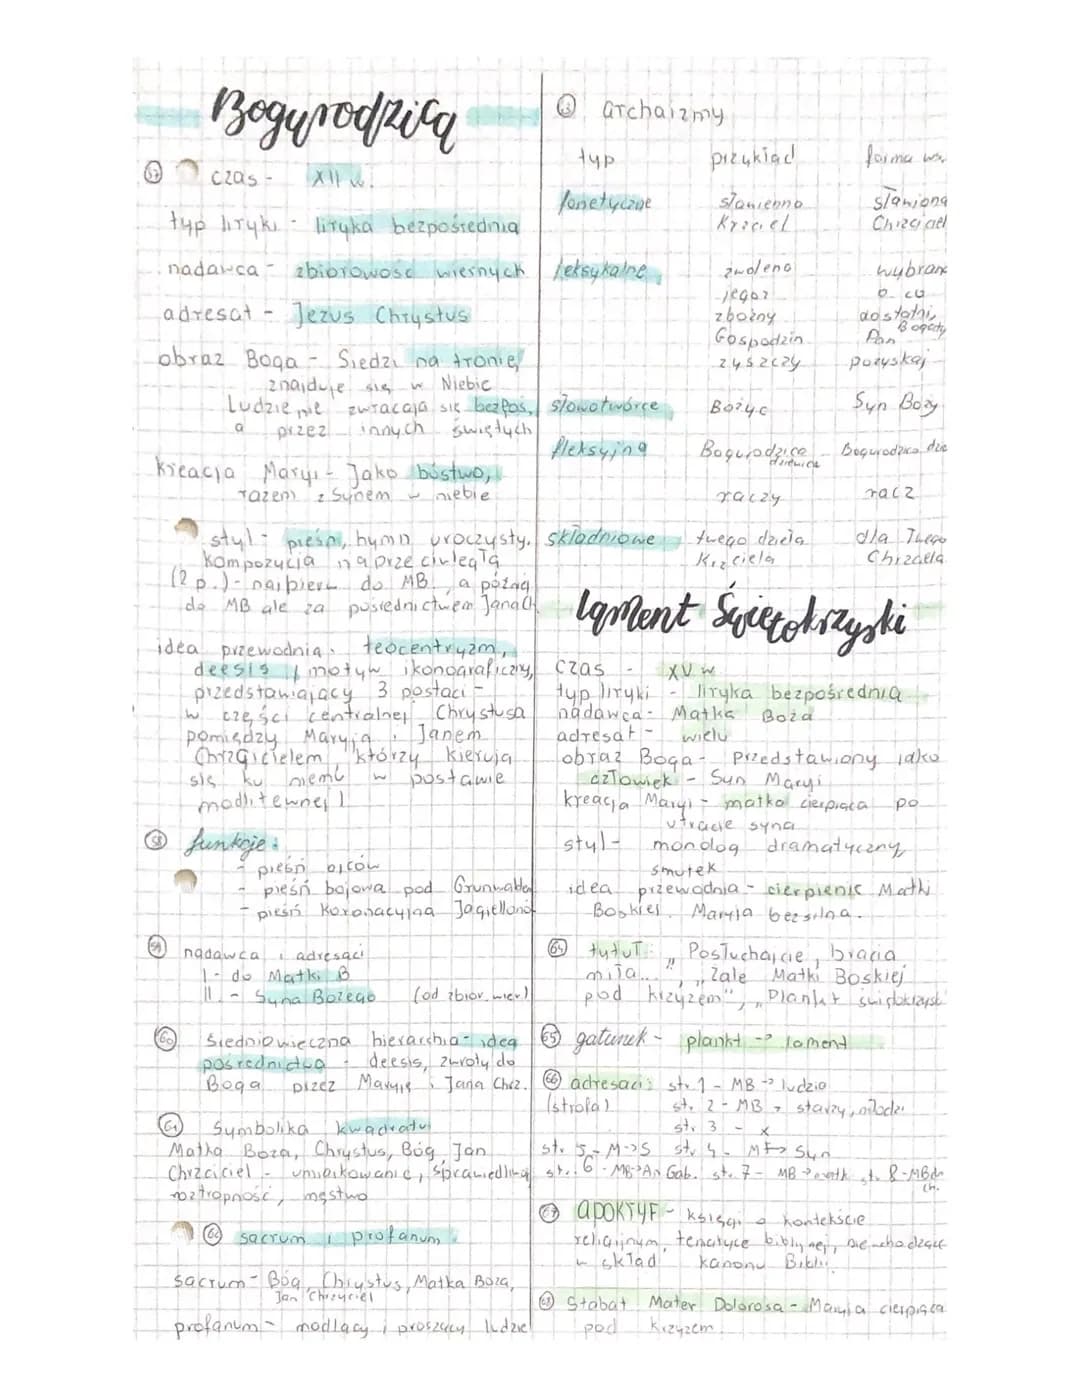 Bogurodzica
57 czas - XII w.
typ liryki - liryka bezpośrednia
nadawca - zbiorowość wiernych
adresat - Jezus Chrystus
obraz Boga - Siedzi na tronie,
znajduje się w Niebie
Ludzie nie zwracają się bezpoś,
a przez innych świętych
kreacja Maryi - Jako bóstwo,
razem z Synem w niebie
styl - pieśń, hymn uroczysty.
kompozycja naprzeciwległa
(2 p.) - najpierw do MB, a później
do MB ale za pośrednictwem Jana Ch.
idea przewodnia - teocentryzm,
deesis (motyw ikonograficzny,
przedstawiający 3 postaci -
w części centralnej Chrystusa
pomiędzy Maryją i Janem
Chrzcicielem, którzy kierują
się ku niemu w postawie
modlitewnej)
58 funkcje:
- pieśń ojców
- pieśń bojowa pod Grunwaldem
- pieśń koronacyjna Jagiellonów
59 nadawca i adresaci
I - do Matki B
II - Syna Bożego (od zbior. wier.)
60 średniowieczna hierarchia - idea
pośrednictwa - deesis, zwroty do
Boga przez Maryję i Jana Chrz.
61 Symbolika kwadratu
Matka Boża, Chrystus, Bóg, Jan
Chrzciciel - umiarkowanie, sprawiedliwość
roztropność, męstwo
62 sacrum i profanum.
sacrum - Bóg, Chrystus, Matka Boża,
Jan Chrzciciel
profanum - modlący i proszący ludzie
63 archaizmy
typ przykład forma ws.
fonetyczne sławienno sławiona
Krzciel Chrzciciel
leksykalne zwolena wybrana
jegoż o co
zbożny dostatni, Bogaty
Gospodzin Pan
zyszczy pozyskaj
słowotwórcze Bożyc Syn Boży
fleksyjna Bogurodzica dziewica - Bogurodzico dzie
raczy racz
składniowe twego dziela dla Twego
Krzciela Chrzciciela
Lament Świętokrzyski
czas - XV w
typ liryki - liryka bezpośrednia
nadawca - Matka Boża
adresat - wielu
obraz Boga - Przedstawiony jako
człowiek - Syn Maryi
kreacja Maryi - matka cierpiąca po
utracie syna
styl - monolog dramatyczny,
smutek
idea przewodnia - cierpienie Matki
Boskiej. Maryja bezsilna.
64 tytuł: „Posłuchajcie, bracia
miła..", „Żale Matki Boskiej
pod krzyżem", „Plankt świętokrzysk
65 gatunek - plankt -> lament
66 adresaci: str. 1 - MB -> ludzie
(strofa) st. 2 - MB -> starzy, młodzi
st. 3 - x
st. 5 - M->S st. 4 - M -> Syn
st. 6 - MB->An Gab. st. 7 - MB -> matk st. 8 - MB do
ch.
67 apokryf - księgi o kontekście
religijnym, tematyce biblijnej, nie wchodzące
w skład kanonu Biblii
68 Stabat Mater Dolorosa - Maryja cierpiąca
pod krzyżem